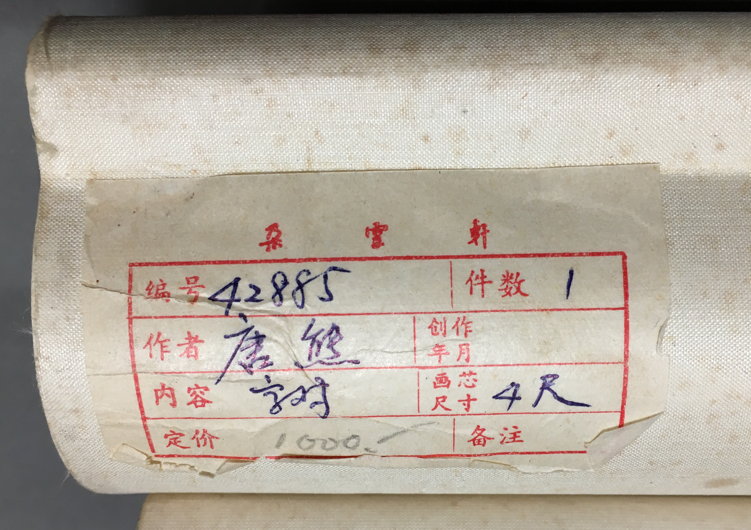 朵雲軒
编号 42885 件数 1
作者 唐熊 创作年月
内容 字对 画芯尺寸 4尺
定价 1000.- 备注